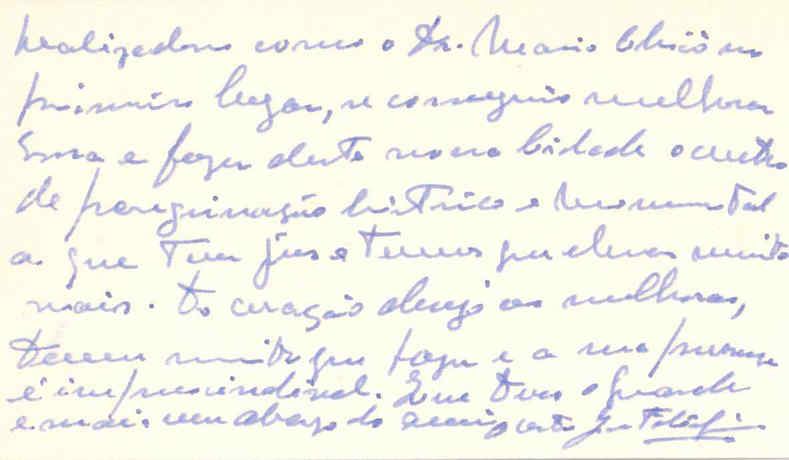 realizadores como o Dr. Mario Chicó em
primeiro lugar, se conseguiu melhorar
Evora e fazer desta nossa Cidade o centro
de peregrinação histórico e Monumental
a que tem jus e temos que elevar muito
mais. Do coração desejo as melhoras,
temos muito que fazer e a sua presença
é imprescindivel. Que Deus o guarde
e mais um abraço do amigo certo